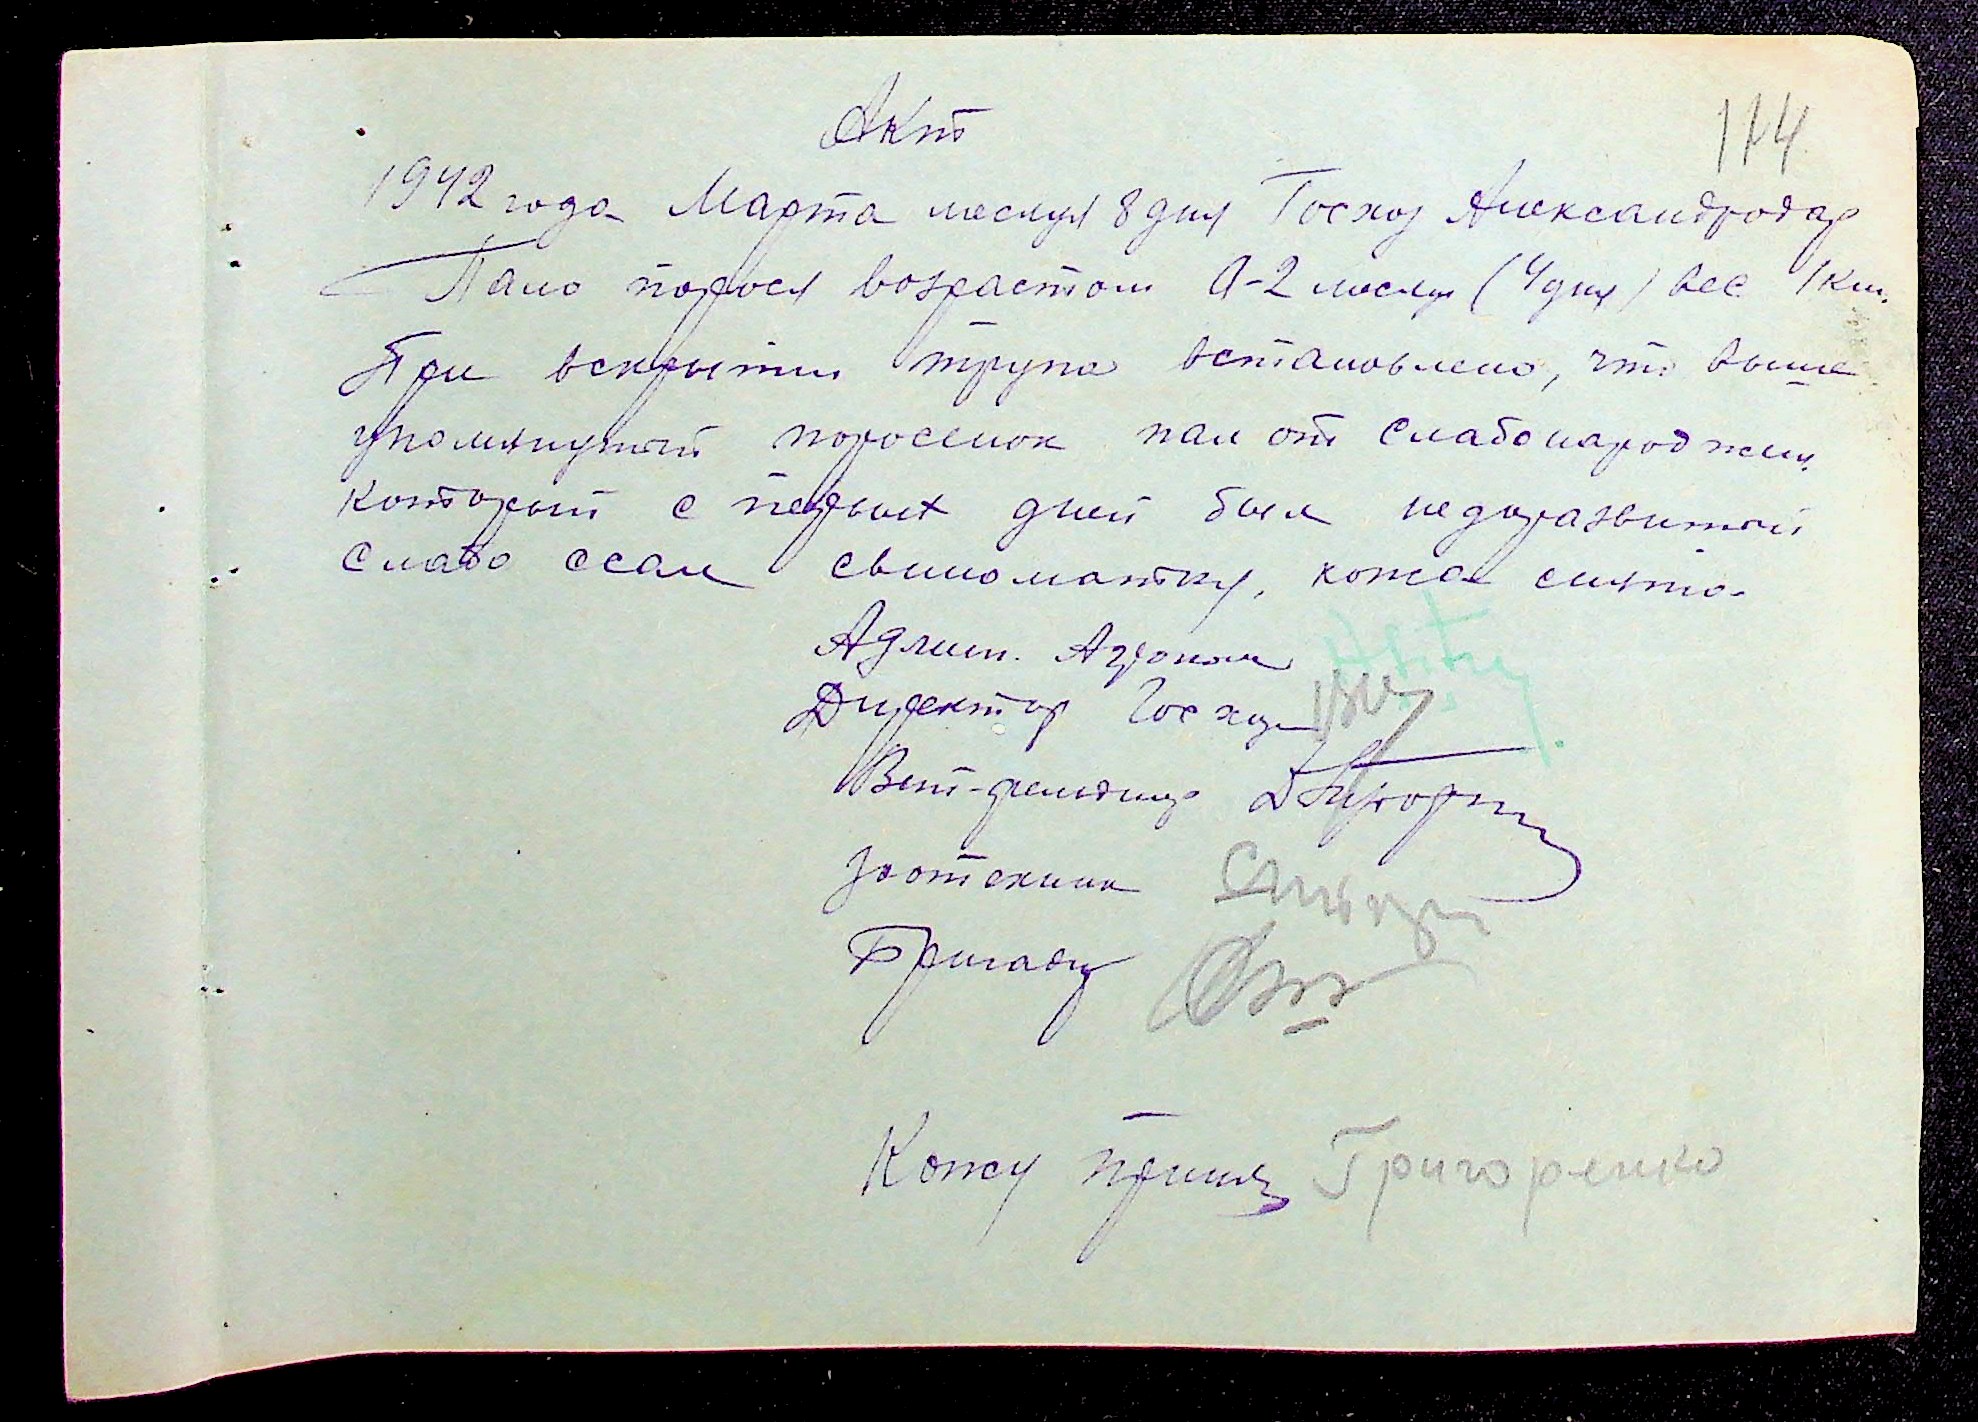 174
Акт
1942 года Марта месяця 8 дня Госхоз Александродар
Пало порося возрастом 0-2 месяця (4 дня) вес 1 кил.
При вскрытии трупа встановлено, что выше
упомянутый поросенок пал от слабонарожден.
который с первых дней был недоразвитой
слабо ссал свиноматку, кожа снята.
Админ. Агроном
Директор Госхоза
Вет-фельдшер
Зоотехник
Бригадир
Кожу принял Григоренко